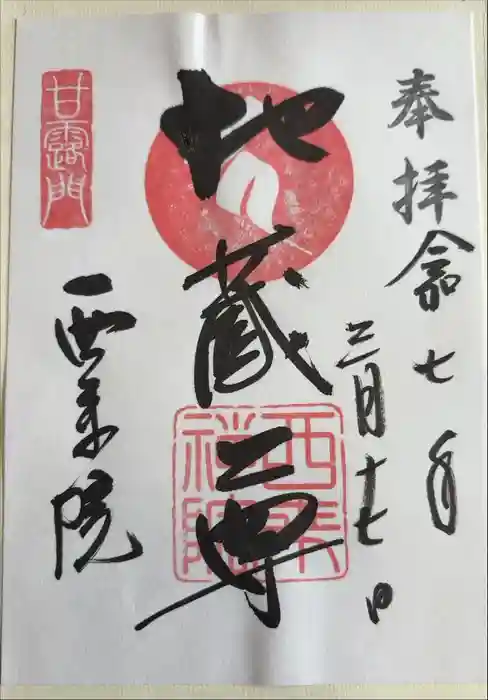 奉拝 令和七年
三月十七日
地蔵尊
甘露門
西来院
西来禅院